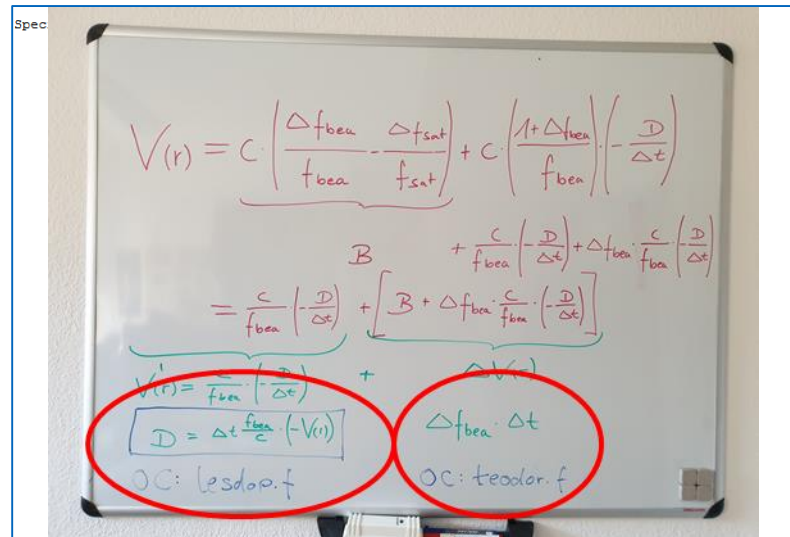 Spec:
V(r) = C · (Δf_bea / f_bea - Δf_sat / f_sat) + C · (1 + Δf_bea / f_bea) · (- D / Δt)
B + C / f_bea · (- D / Δt) + Δf_bea · C / f_bea · (- D / Δt)
= C / f_bea · (- D / Δt) + [B + Δf_bea · C / f_bea · (- D / Δt)]
V'(r) = C / f_bea · (- D / Δt) + ΔV(r)
D = Δt f_bea / C · (-V(r)) Δf_bea · Δt
OC: lesdop.f OC: teodor.f